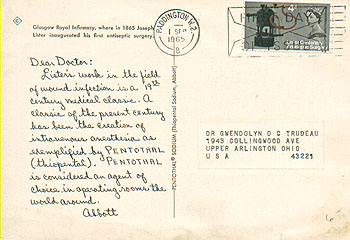 Glasgow Royal Infirmary, where in 1865 Joseph
Lister inaugurated his first antiseptic surgery.
PADDINGTON W.2.
1 SEP
1965
B
FIRST DAY
4d
Dear Doctor:
Lister's work in the field
of wound infection is a 19th
century medical classic. A
classic of the present century
has been the creation of
intravenous anesthesia as
exemplified by PENTOTHAL
(thiopental). PENTOTHAL
is considered an agent of
choice in operating rooms the
world around.
Abbott
PENTOTHAL® SODIUM (Thiopental Sodium, Abbott)
DR GWENDOLYN D C TRUDEAU
1943 COLLINGWOOD AVE
UPPER ARLINGTON OHIO
U S A 43221